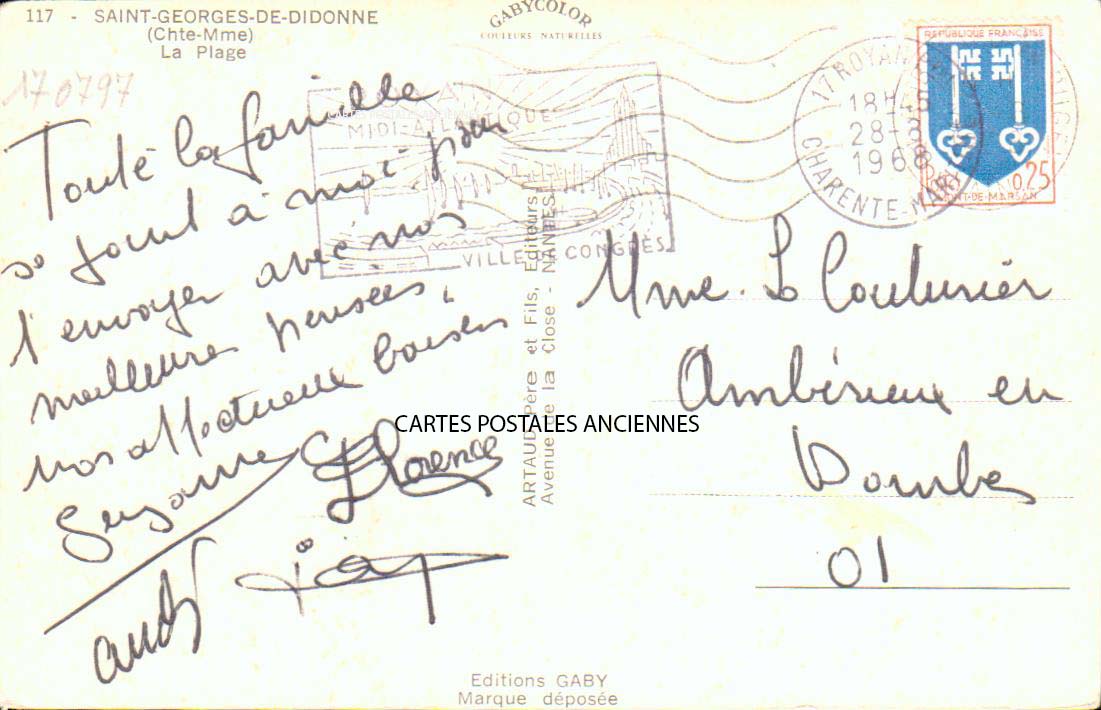 117 - SAINT-GEORGES-DE-DIDONNE
(Chte-Mme)
La Plage
GABYCOLOR
COULEURS NATURELLES
170797
Toute la famille
se joint à moi pour
t'envoyer avec nos
meilleures pensées,
nos affectueux baisers
Suzanne Florence
andré
MIDI-ATLANTIQUE
VILLE CONGRÈS
17 ROYAN
18H45
28-8
1968
CHARENTE-MARI
REPUBLIQUE FRANÇAISE
0,25
MONT-DE-MARSAN
ARTAUD Père et Fils, Editeurs
Avenue de la Close - NANTES
Mme. Le Couturier
Ambérieux en
Dombes
01
CARTES POSTALES ANCIENNES
Editions GABY
Marque déposée